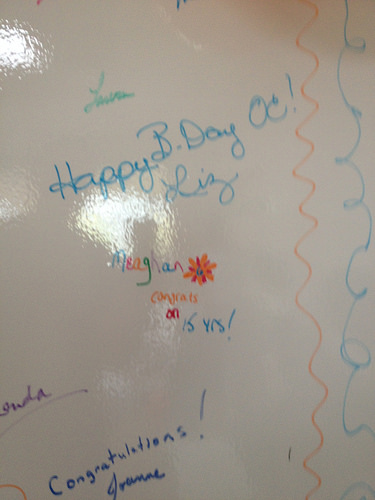 Laura
Happy B.Day OE!
Liz
Meaghan
congrats
on
15 yrs!
Congratulations!
Joanne